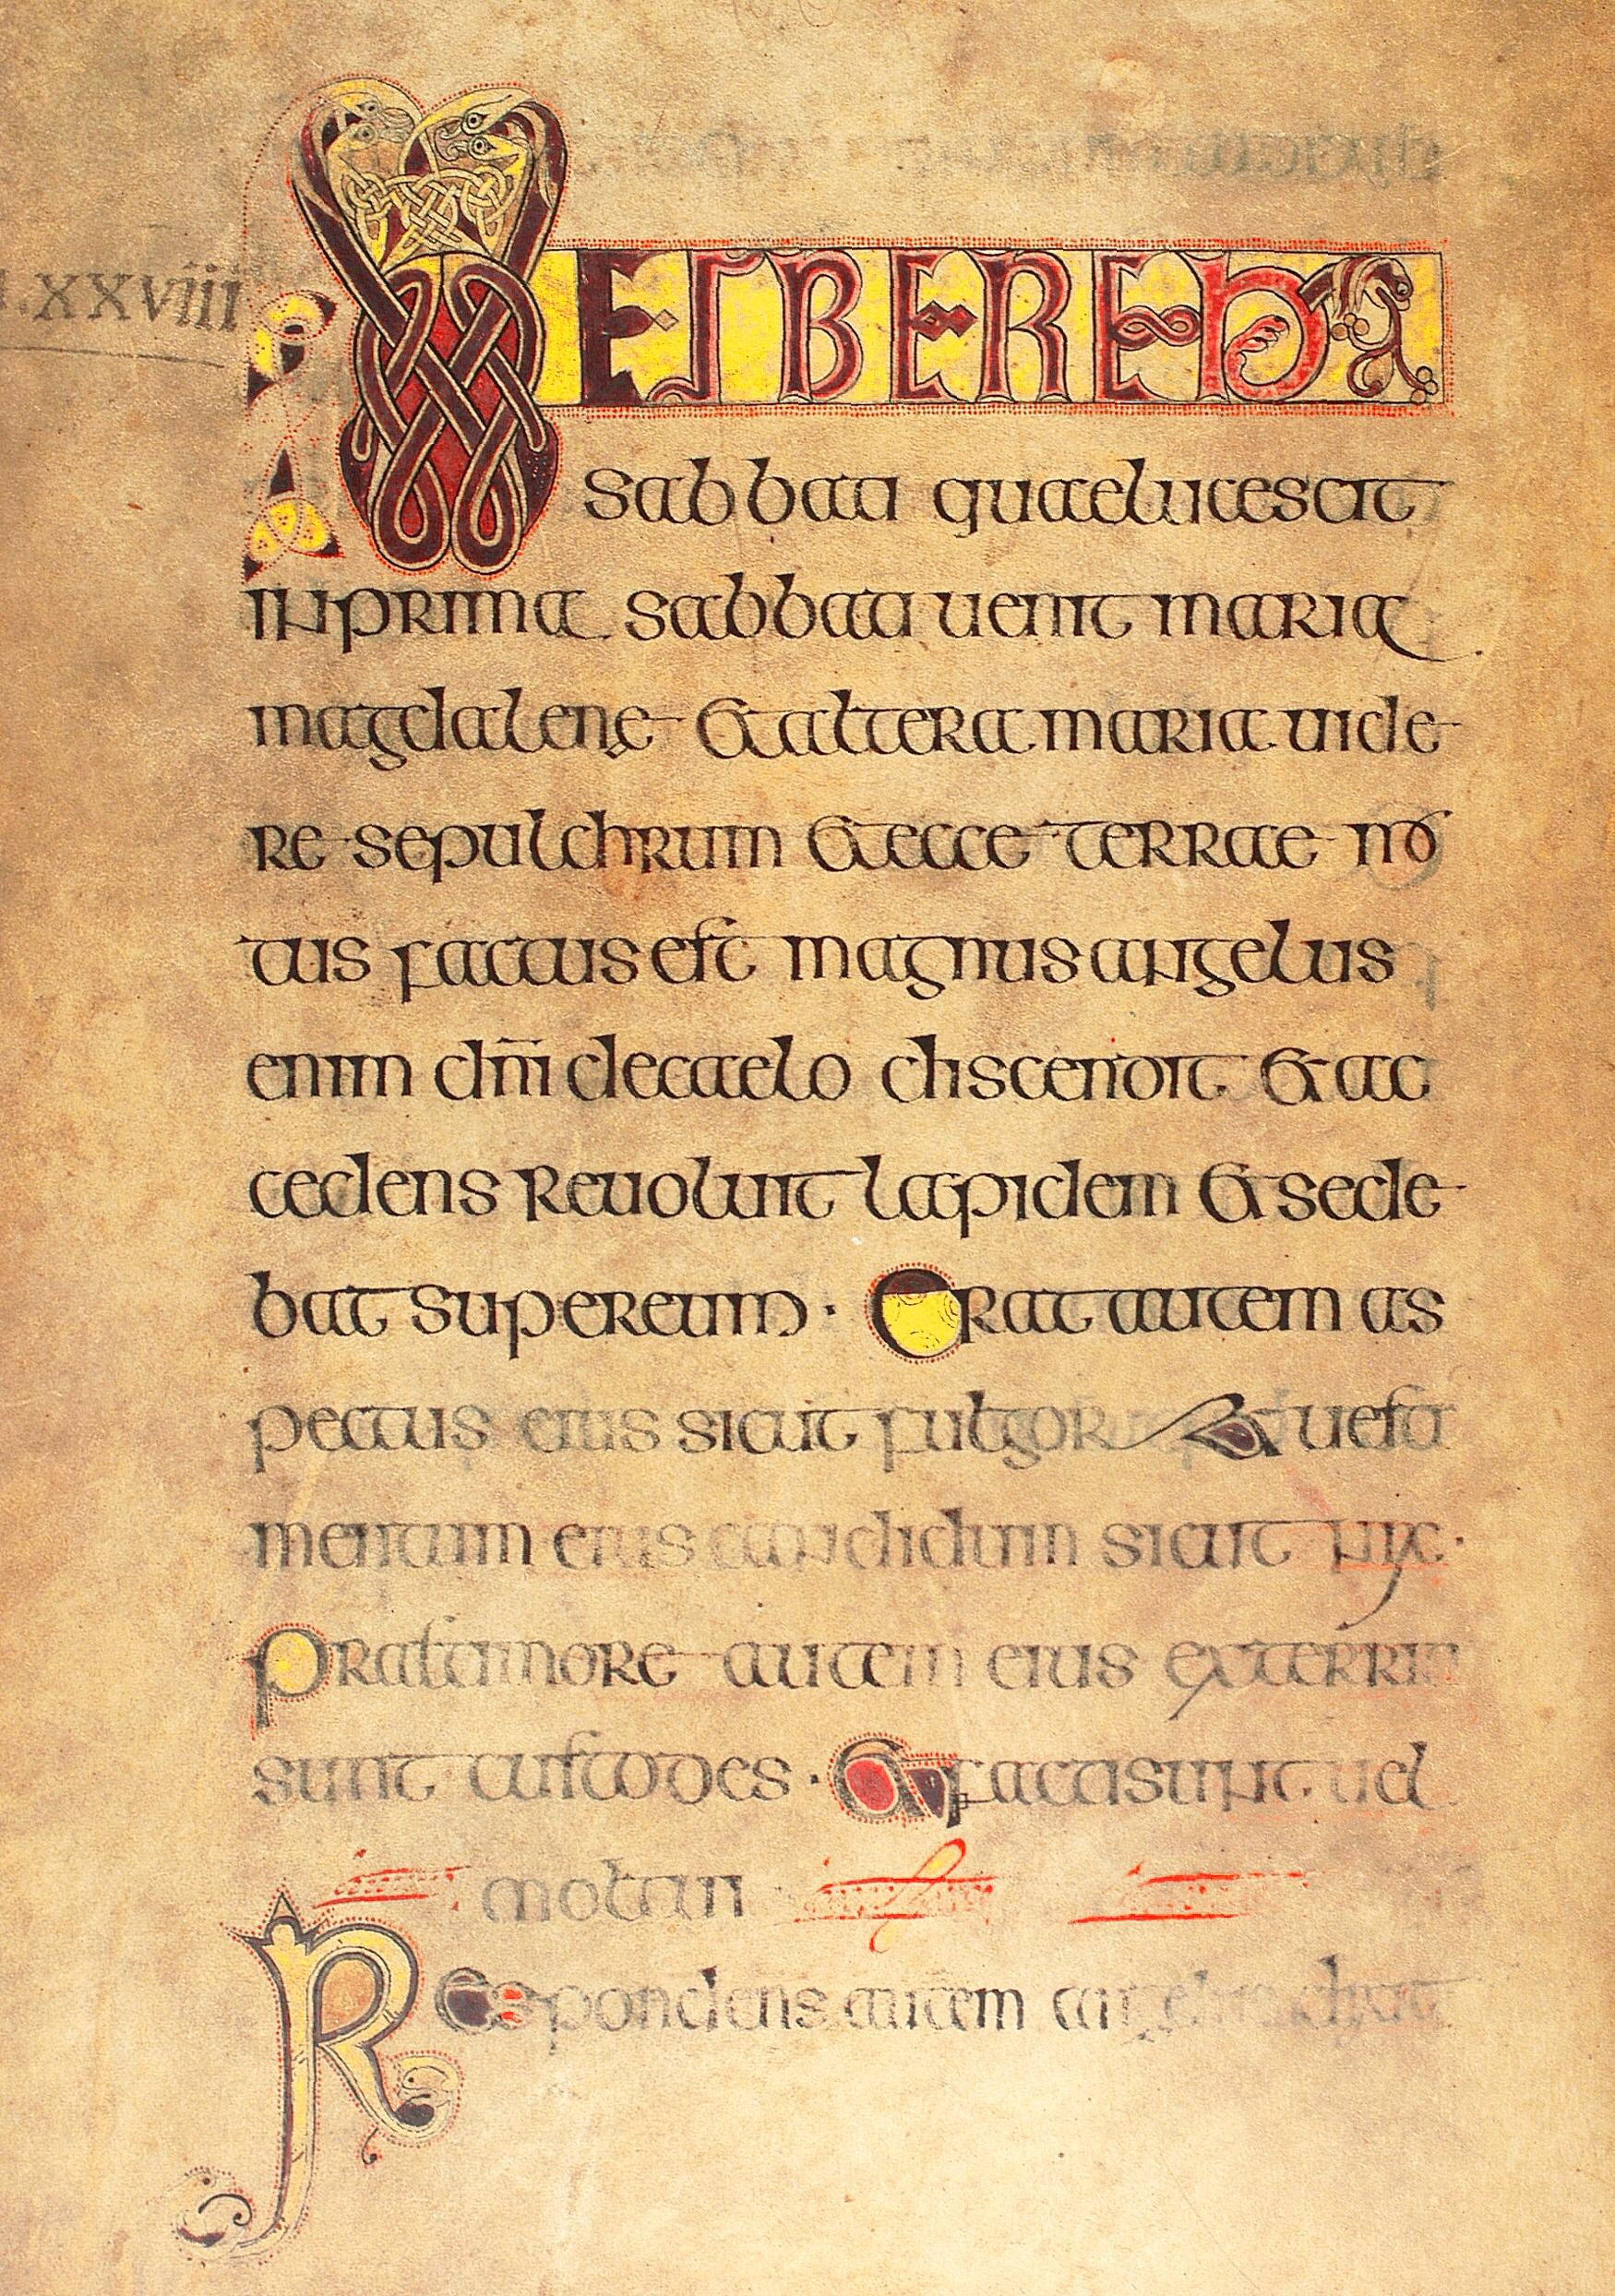 XXVIII
VESPERE h A
sabbati quaelucescit
inprima sabbati uenit maria
magdalenę & altera maria uide
re sepulchrum & ecce terrae mo
tus factus est magnus angelus
enim dn̄i decaelo discendit & ac
cedens reuoluit lapidem & sede
bat supereum · Erat autem as
pectus eius sicut fulgor & uesti
mentum eius candidum sicut nix ·
Prae timore autem eius exterriti
sunt custodes · & facti sunt uel
mortui
Respondens autem angelus dixit